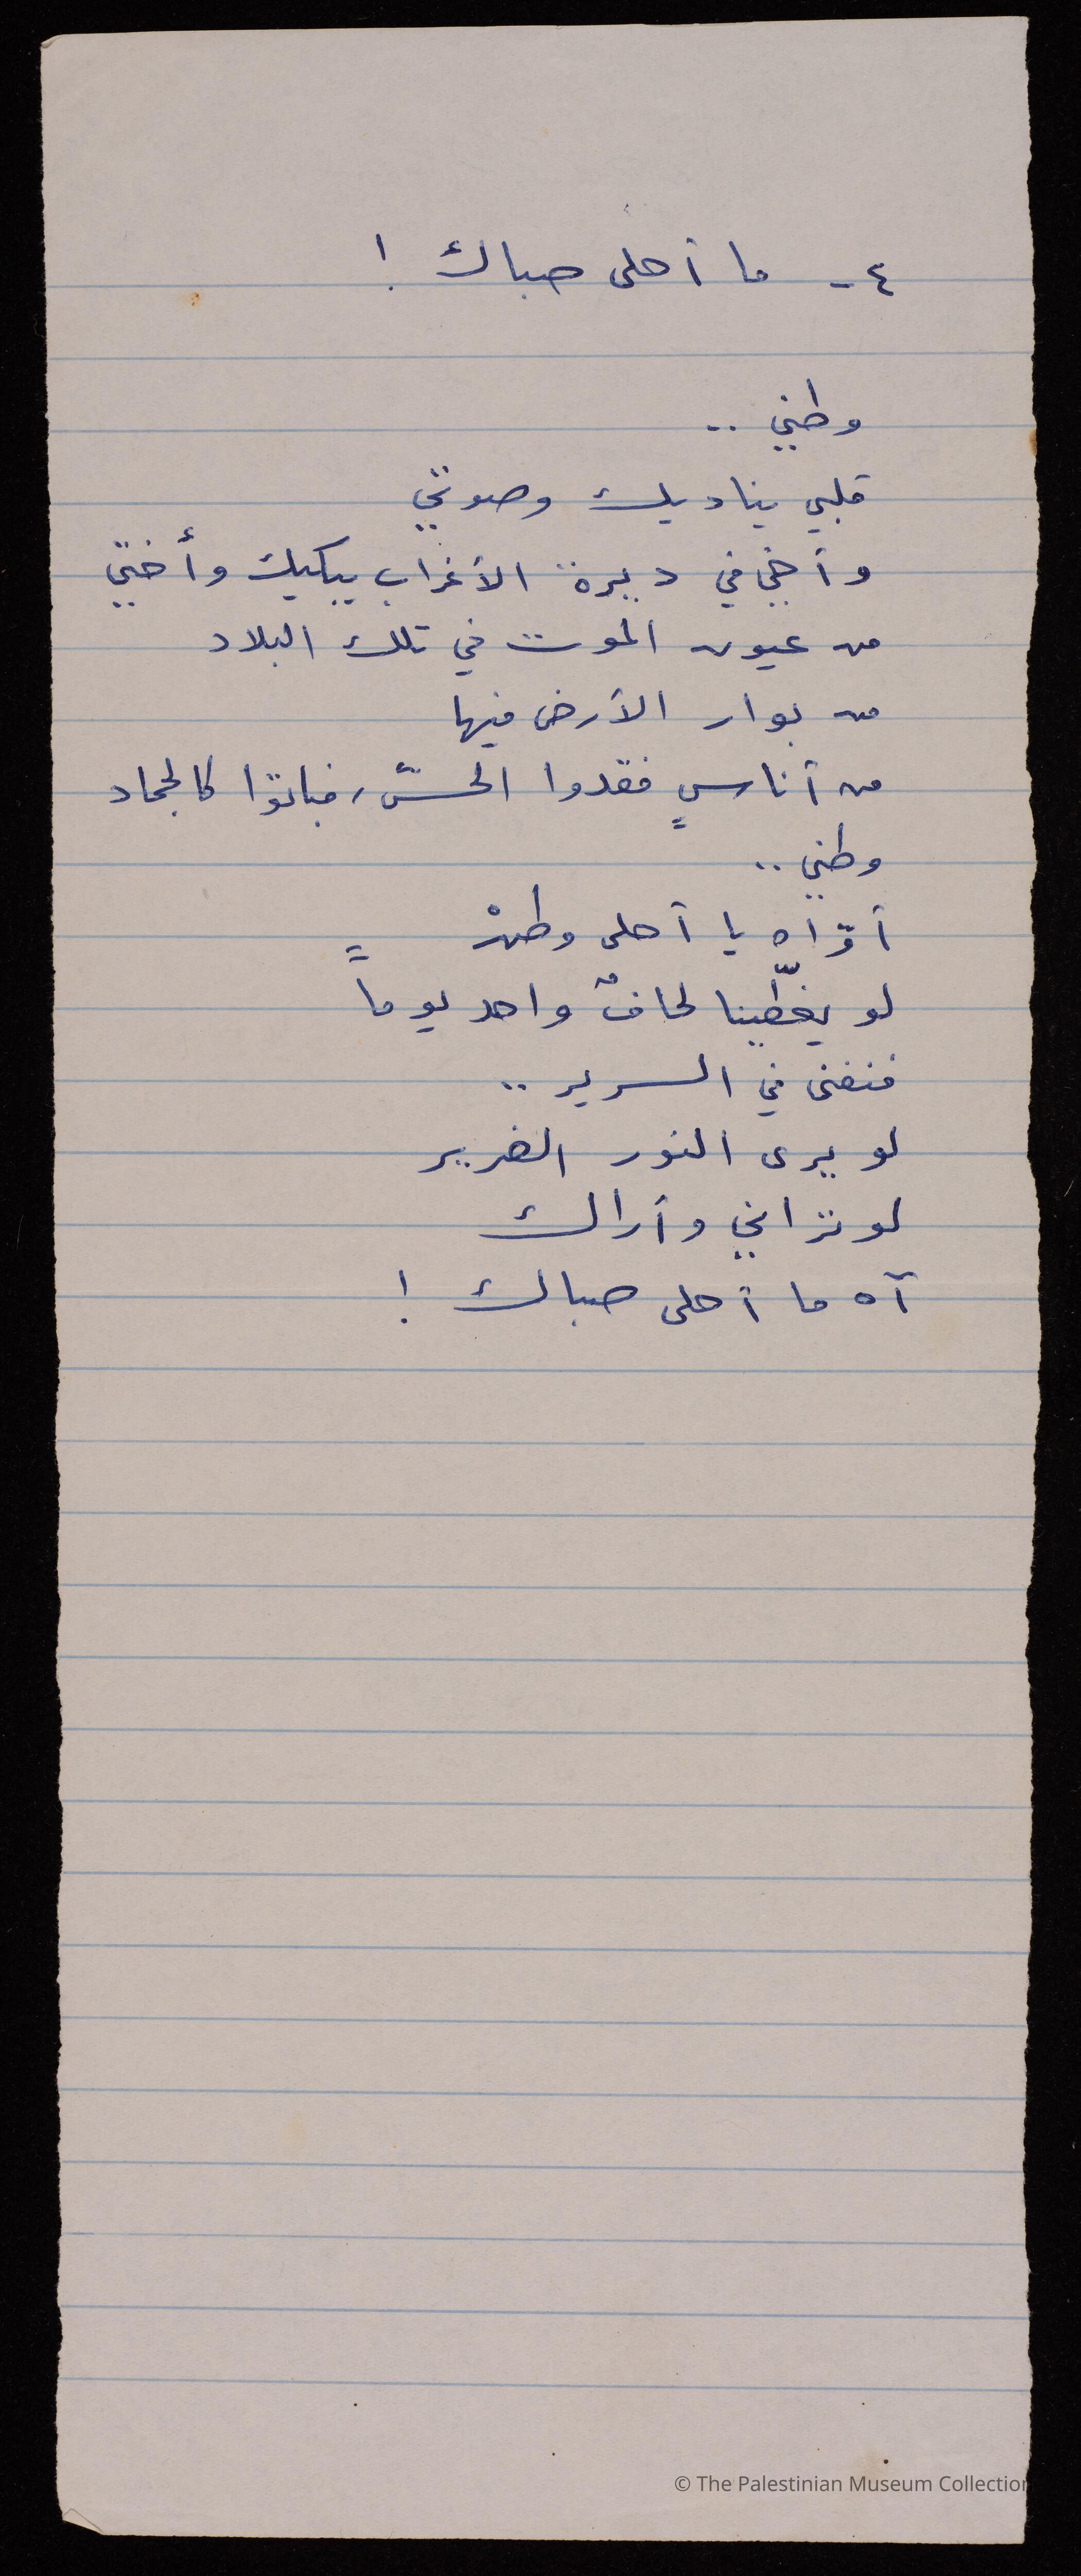 ٤- ما أحلى صباك !
وطني ..
قلبي يناديك وصوتي
وأخي في ديرة الأغراب يبكيك وأختي
من عيون الموت في تلك البلاد
من بوار الأرض فيها
من أناسٍ فقدوا الحسّ، فباتوا كالجماد
وطني ..
أوّاه يا أحلى وطنْ
لو يغطّينا لحافٌ واحد يوماً
فنفنى في السرير ..
لو يرى النور الضرير
لو تراني وأراك
آه ما أحلى صباك !
© The Palestinian Museum Collection